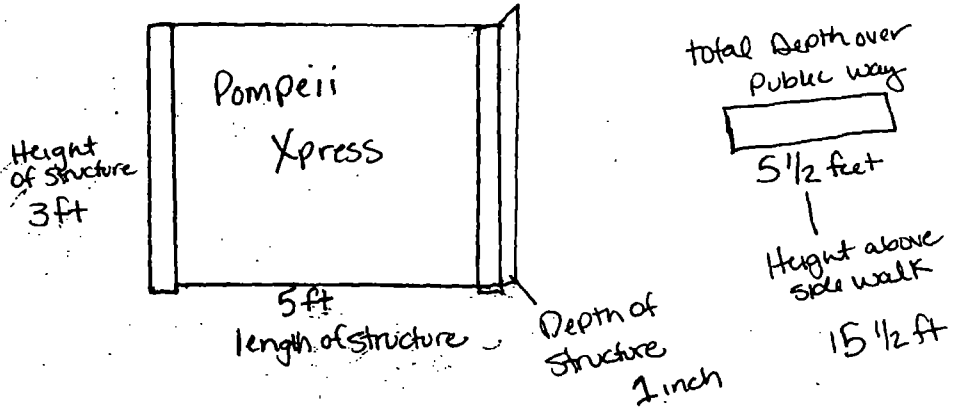 Pompeii
Xpress
Height
of structure
3ft
5ft
length of structure
Depth of
structure
1 inch
total Depth over
Public way
5 1/2 feet
Height above
side walk
15 1/2 ft